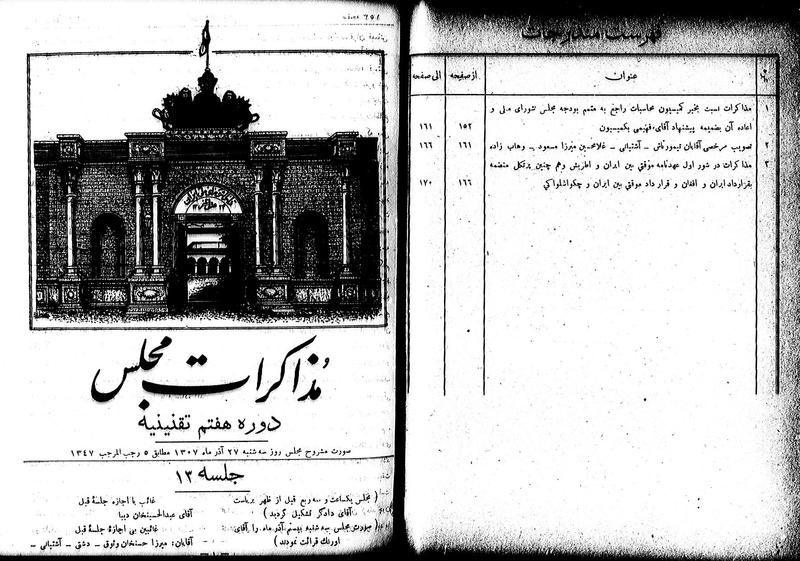 فهرست مندرجات
عنوان
از صفحه
الی صفحه
۱ مذاکرات نسبت بخبر کمیسیون محاسبات راجع به متمم بودجه مجلس شورای ملی و
اعاده آن بضمیمه پیشنهاد آقای فهیمی بکمیسیون ۱۵۲ ۱۶۱
۲ تصویب مرخصی آقایان تیمورتاش - آشتیانی - غلامحسین میرزا مسعود - وهاب زاده ۱۶۱ ۱۶۶
۳ مذاکرات در شور اول عهدنامه موقتی بین ایران و اطریش وهم چنین پرتکل منضمه
بقرارداد ایران و افغان و قرار داد موقتی بین ایران و چکواسلواکی ۱۶۶ ۱۷۰
مذاکرات مجلس
دوره هفتم تقنینیه
صورت مشروح مجلس روز سه شنبه ۲۷ آذر ماه ۱۳۰۷ مطابق ۵ رجب المرجب ۱۳۴۷
جلسه ۱۳
( مجلس یکساعت و سه ربع قبل از ظهر بریاست
آقای دادگر تشکیل گردید )
( صورت مجلس سه شنبه بیستم آذر ماه را آقای
اورنگ قرائت نمودند )
غائب با اجازه جلسهٔ قبل
آقای عبدالحسینخان دیبا
غائبین بی اجازهٔ جلسهٔ قبل
آقایان: میرزا حسنخان وثوق - دشتی - آشتیانی -